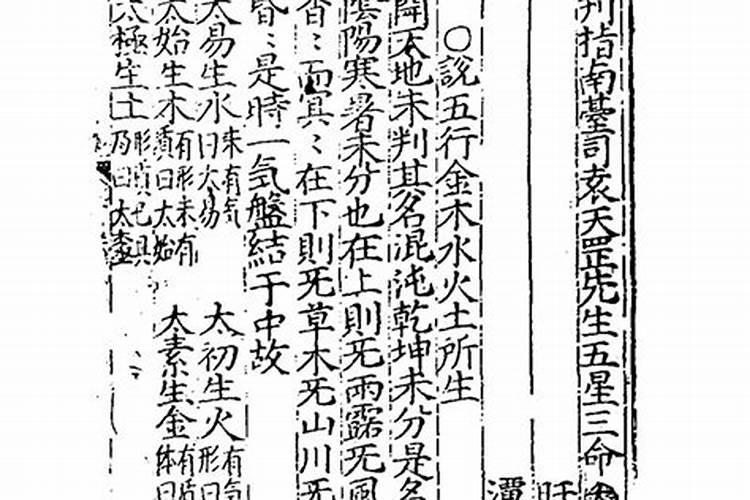 判指南臺司袁天罡先生五星三命
○說五行金木水火土所生
開天地未判其名混沌乾坤未分是名
陰陽寒暑未分也在上則旡雨露旡風
杳〻而冥〻在下則旡草木旡山川旡
昏〻是時一気盤結于中故
太易生水未有気曰太易 太初生火有気形曰
太始生木有形未有質曰太始 太素生金有質体曰
太極生土形質已具乃曰太極